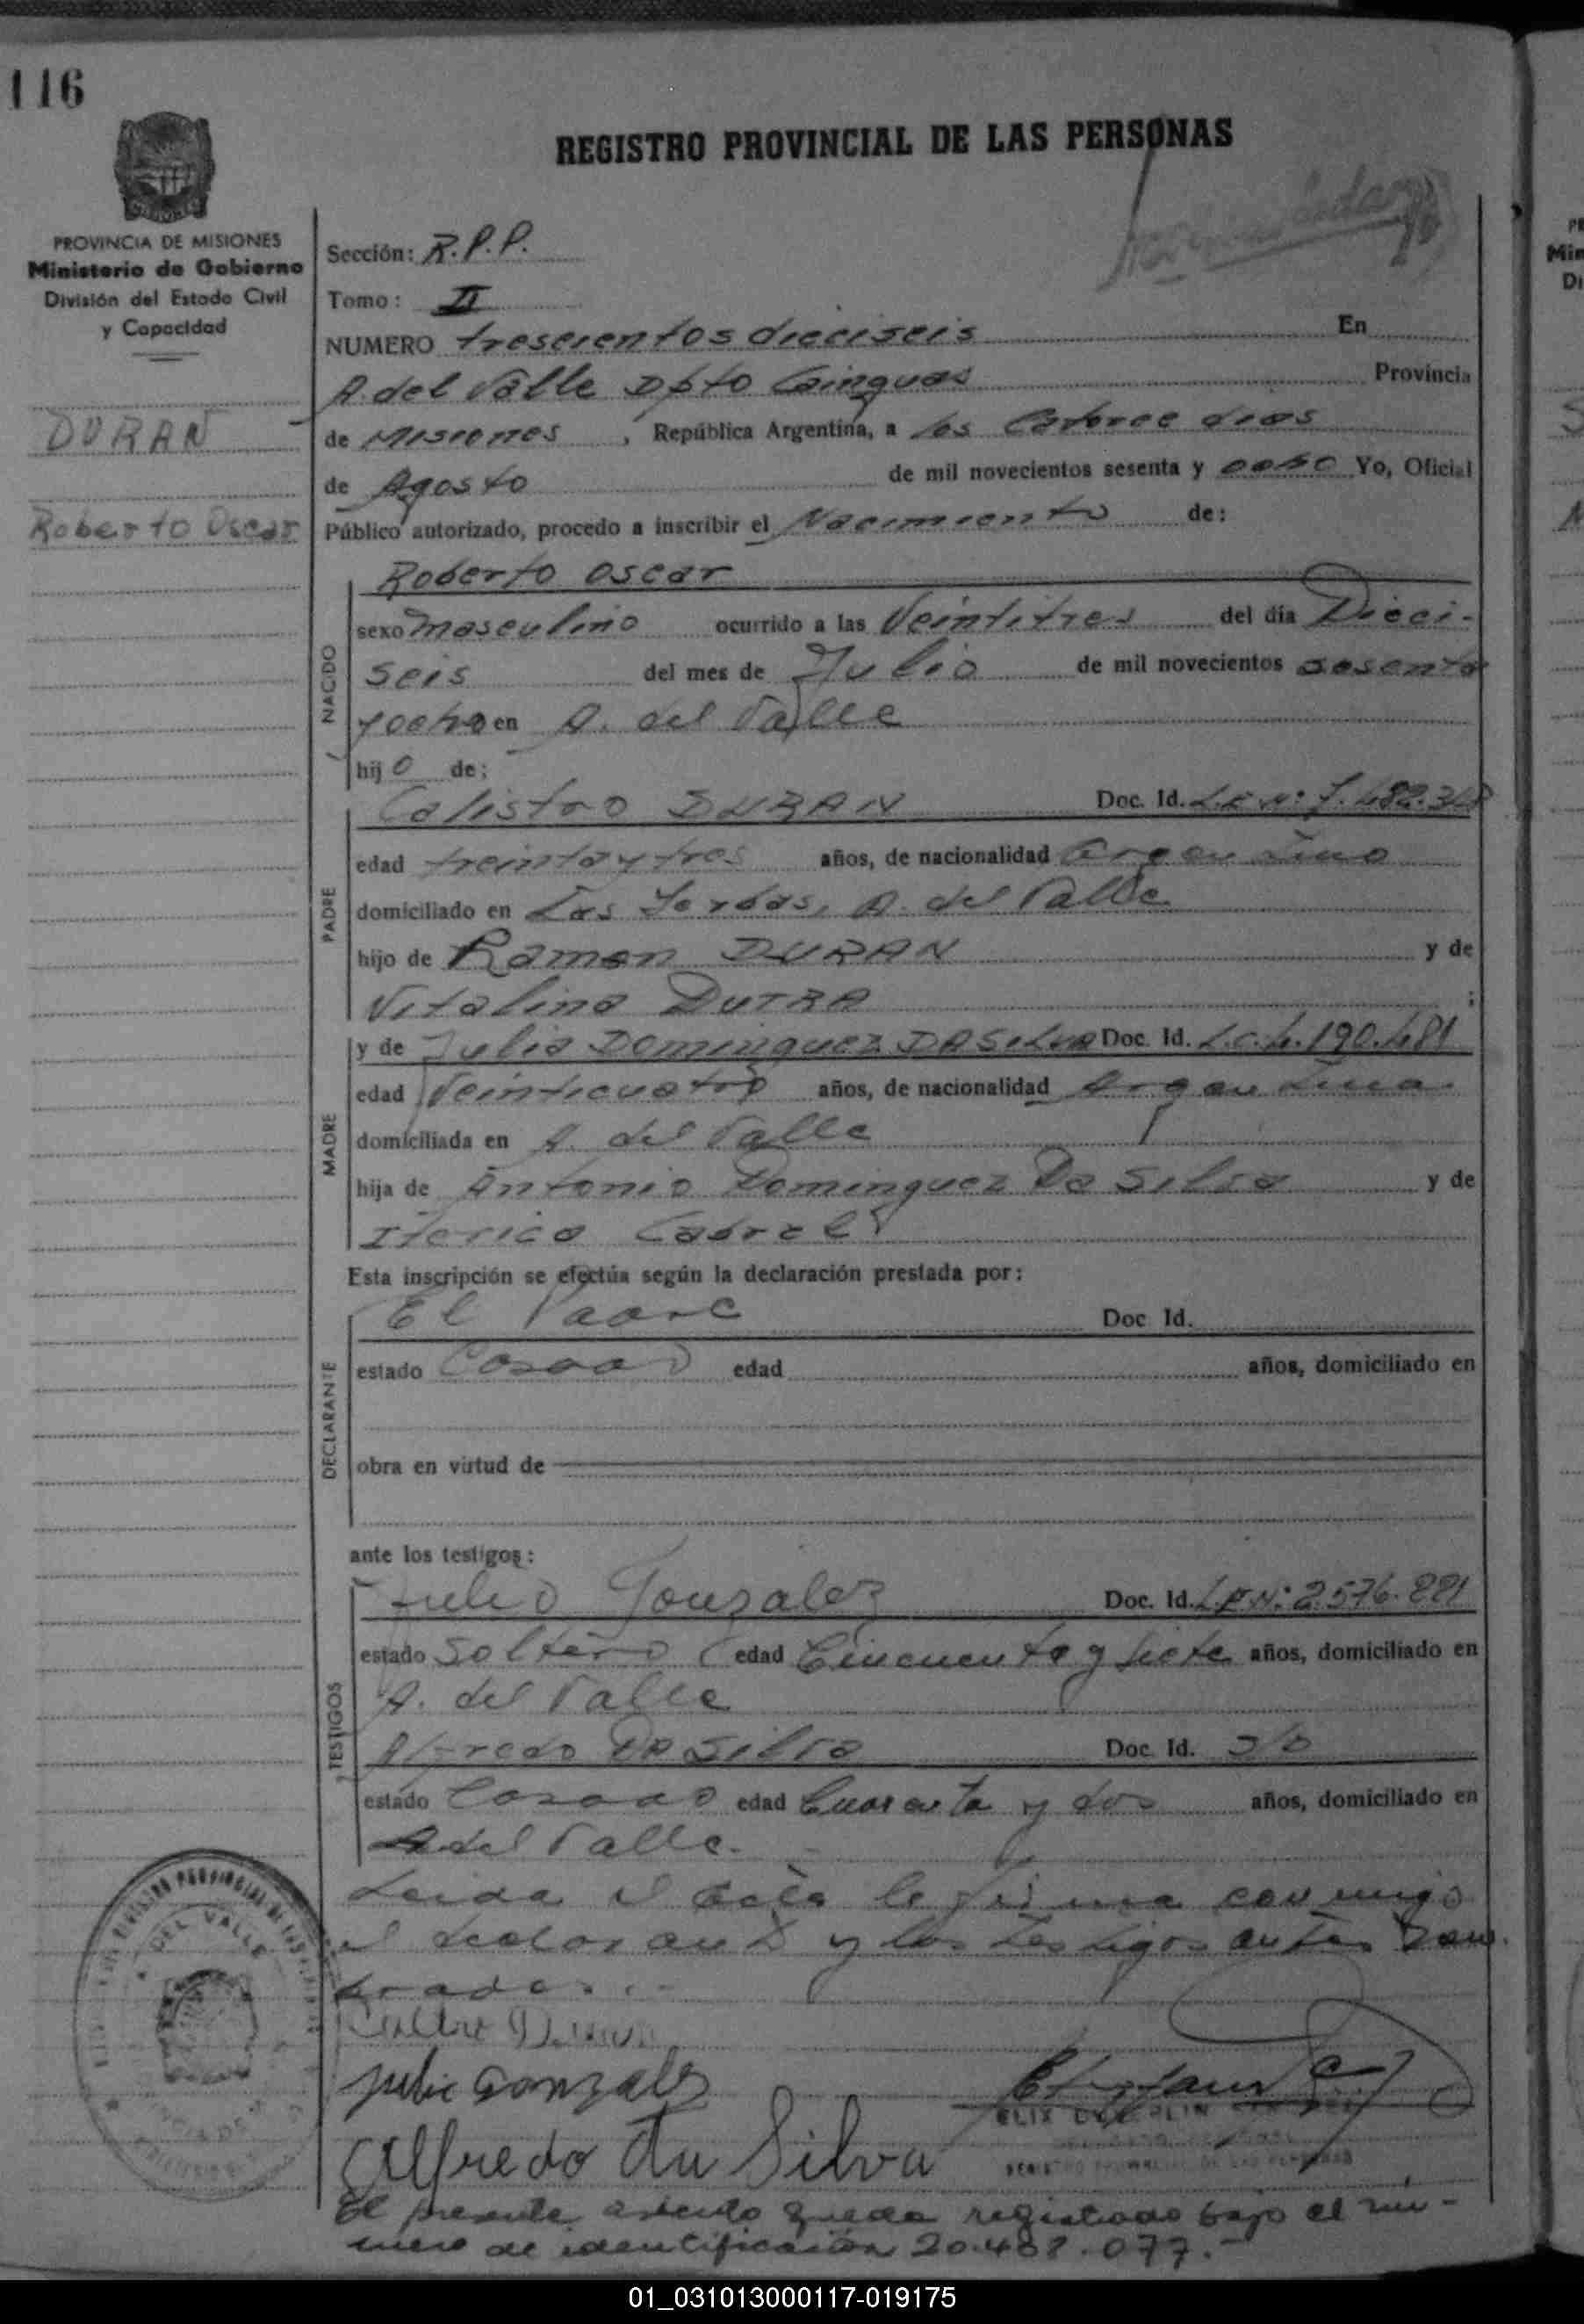 116
REGISTRO PROVINCIAL DE LAS PERSONAS
PROVINCIA DE MISIONES
Ministerio de Gobierno
División del Estado Civil
y Capacidad
DURAN
Roberto Oscar
Sección: R.P.P.
Tomo: II
NUMERO trescientos dieciseis En
A. del Valle Dpto Cainguas Provincia
de Misiones, República Argentina, a los Catorce dias
de Agosto de mil novecientos sesenta y ocho Yo, Oficial
Público autorizado, procedo a inscribir el Nacimiento de:
NACIDO
Roberto Oscar
sexo masculino ocurrido a las Veintitres del día Dieci-
seis del mes de Julio de mil novecientos sesenta
y ocho en A. del Valle
hijo de:
PADRE
Calistro DURAN Doc. Id. L.E. Nº 7.482.
edad treinta y tres años, de nacionalidad Argentino
domiciliado en Las A. del Valle
hijo de Ramon DURAN y de
Vitalina DUTRA ;
MADRE
y de Julia DOMINGUEZ DA SILVA Doc. Id. L.C. 4.190.481
edad Veinticuatro años, de nacionalidad Argentina
domiciliada en A. del Valle
hija de Antonio Dominguez Da Silva y de
Cabral
Esta inscripción se efectúa según la declaración prestada por:
DECLARANTE
El Padre Doc. Id.
estado Casado edad años, domiciliado en
obra en virtud de
ante los testigos:
TESTIGOS
Julio Gonzalez Doc. Id. L.E. Nº 2.576.221
estado Soltero edad Cincuenta y siete años, domiciliado en
A. del Valle
Alfredo DA Silva Doc. Id.
estado Casado edad Cuarenta y dos años, domiciliado en
A del Valle.
Leida el Acta la firma conmigo
el declarante y los testigos antes nom-
brados.
Duran
Julio Gonzalez
Alfredo da Silva
El presente asiento queda registrado bajo el nú-
mero de identificación 20.468.077.-
DEL VALLE
01_031013000117-019175